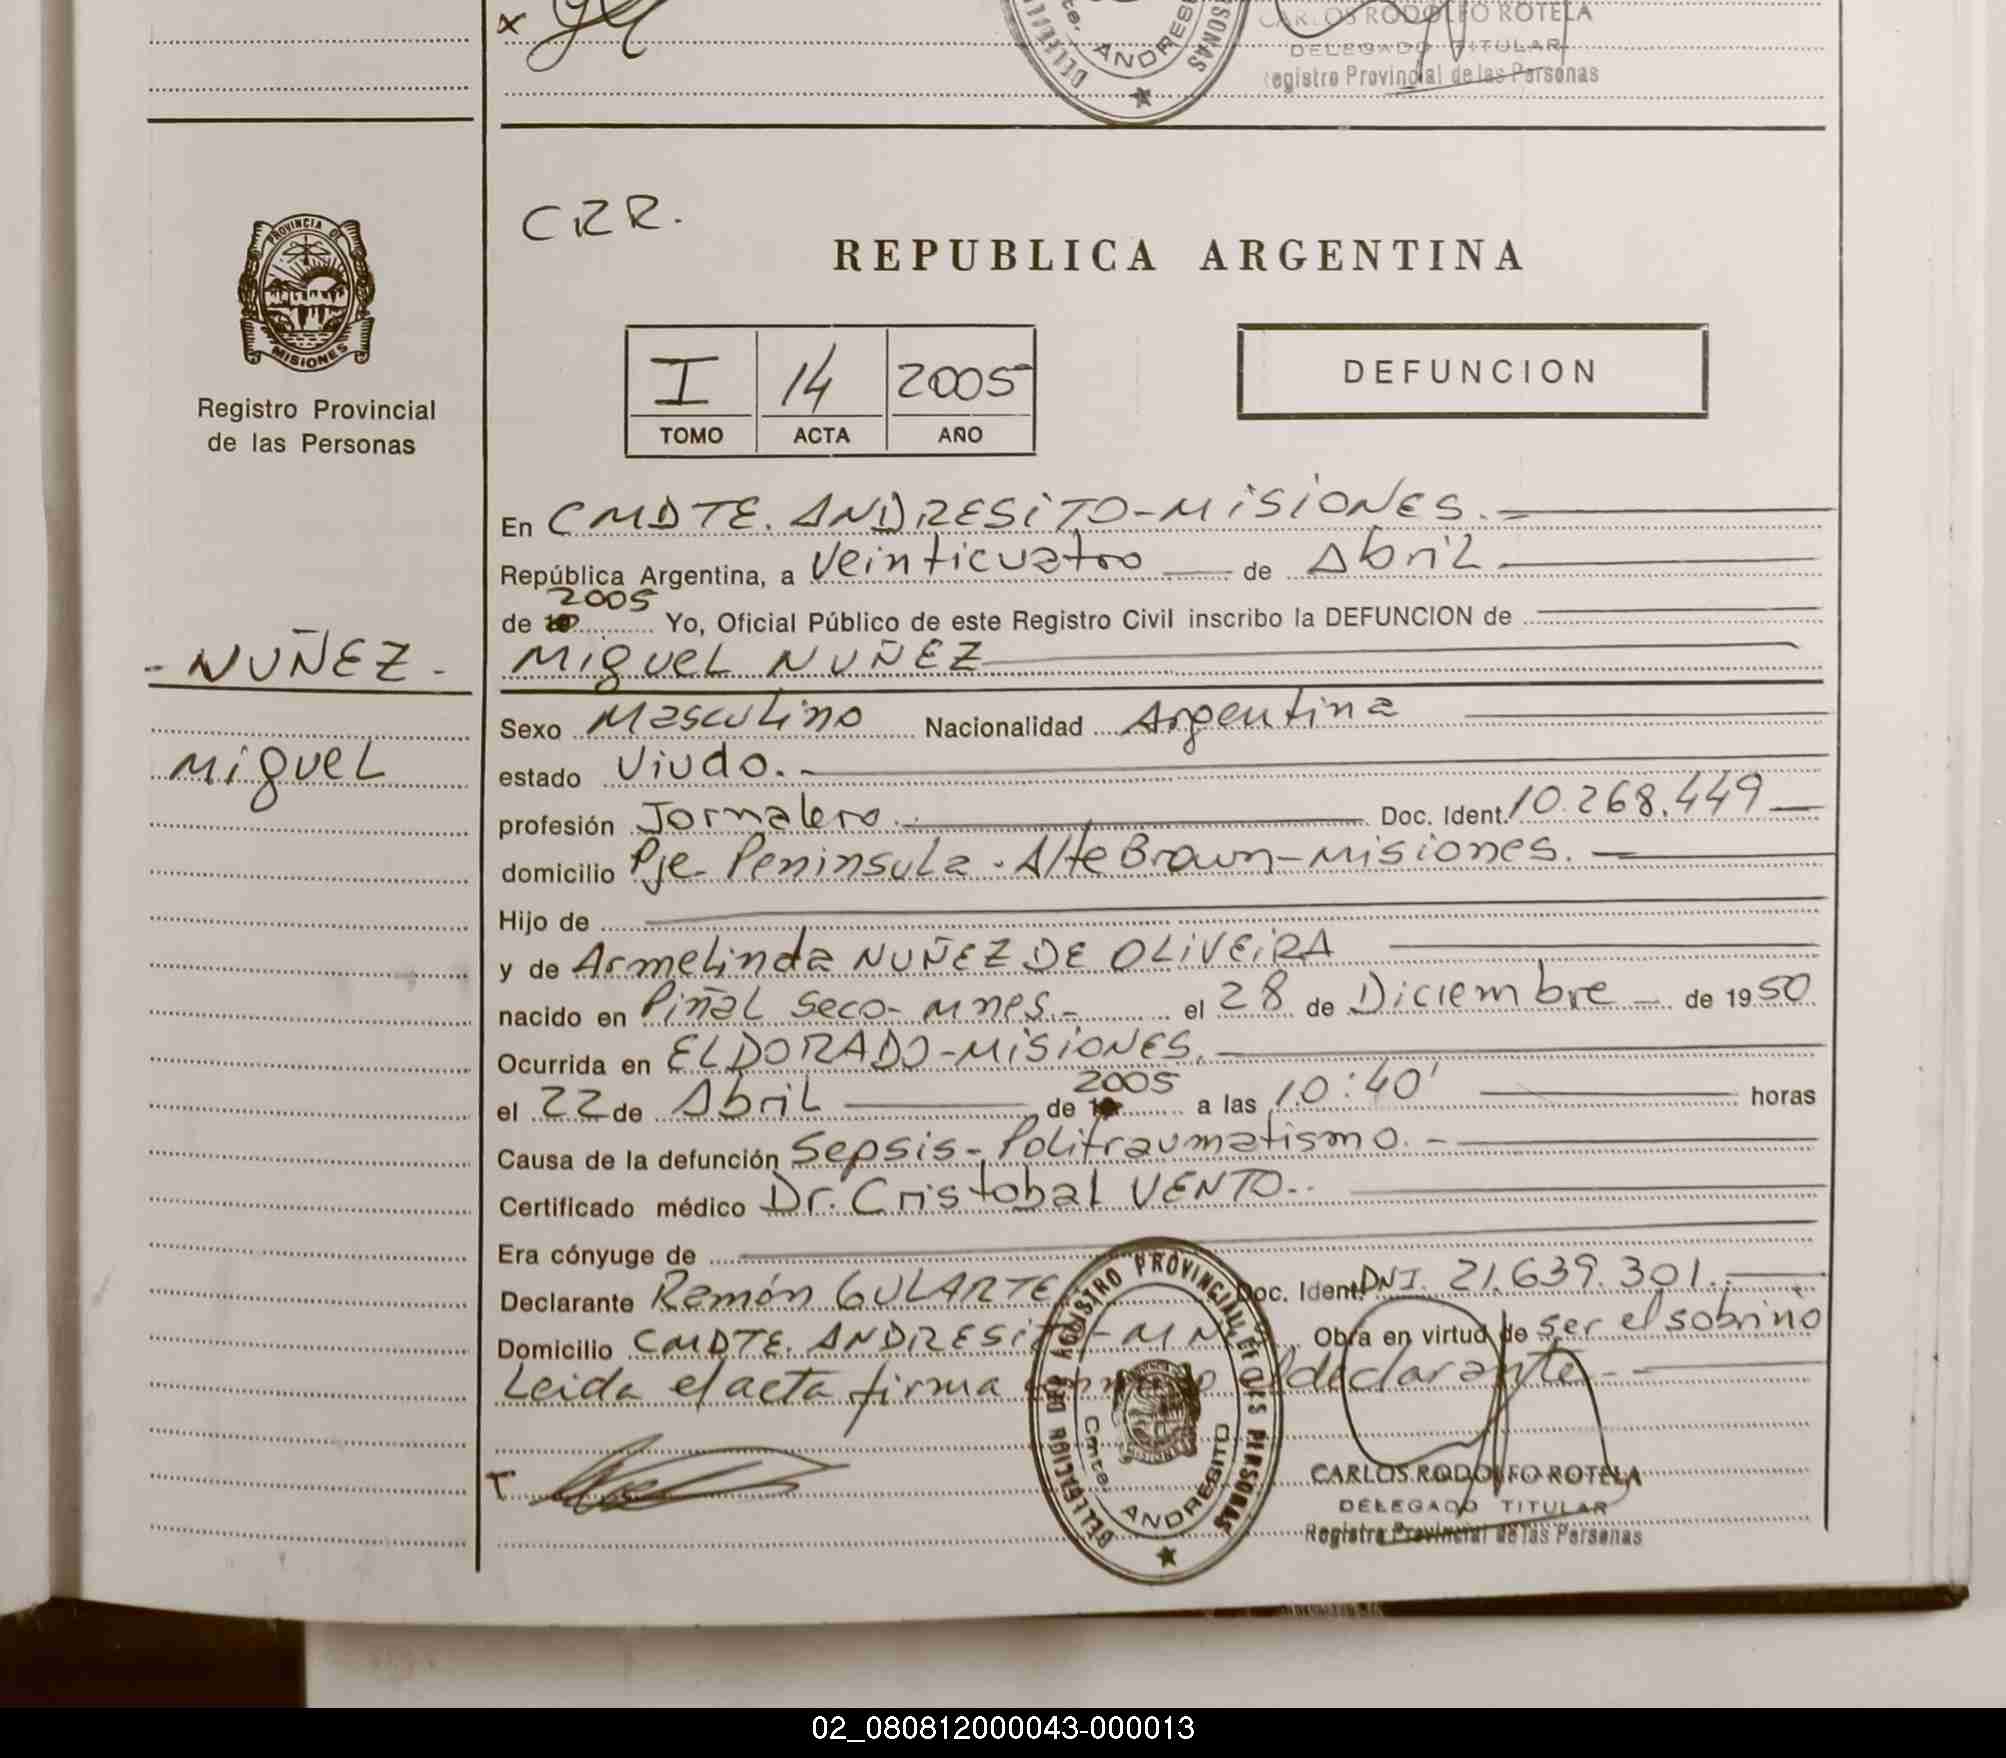 CARLOS RODOLFO ROTELA
DELEGADO TITULAR
Registro Provincial de las Personas
ANDRESITO
PROVINCIA DE
MISIONES
Registro Provincial
de las Personas
CRR.
REPUBLICA ARGENTINA
I 14 2005
TOMO ACTA AÑO
DEFUNCION
En CMDTE. ANDRESITO-MISIONES.
República Argentina, a Veinticuatro de Abril
2005
de 19 Yo, Oficial Público de este Registro Civil inscribo la DEFUNCION de
- NUÑEZ - Miguel NUÑEZ
Sexo Masculino Nacionalidad Argentina
Miguel
estado Viudo.-
profesión Jornalero.- Doc. Ident. 10.268.449
domicilio Pje Peninsula - Alte Brown-Misiones.
Hijo de
y de Armelinda NUÑEZ DE OLIVEIRA
nacido en Piñal Seco- Mnes.- el 28 de Diciembre de 1950
Ocurrida en ELDORADO-MISIONES.
2005
el 22 de Abril de 19 a las 10:40' horas
Causa de la defunción Sepsis- Politraumatismo.-
Certificado médico Dr. Cristobal VENTO..
Era cónyuge de
Declarante Ramón GULARTE Doc. Ident. DNI. 21.639.301.
Domicilio CMDTE. ANDRESITO-MNES Obra en virtud de ser el sobrino
Leida el acta firma conmigo el declarante.-
DELEGACION DEL REGISTRO PROVINCIAL DE LAS PERSONAS
Cmte. ANDRESITO
CARLOS RODOLFO ROTELA
DELEGADO TITULAR
Registro Provincial de las Personas
02_080812000043-000013